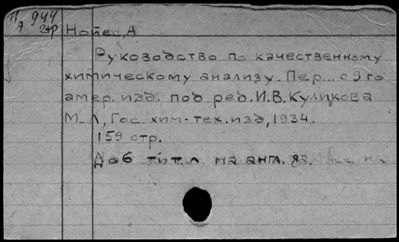 А 944
24р
Нойес, А
Руководство по качественному
химическому анализу. Пер... с 9го
амер. изд. под ред. И.В. Куликова
М_Л, Гос. хим-тех. изд, 1934.
159 стр.
Доб тит. л на англ. яз.